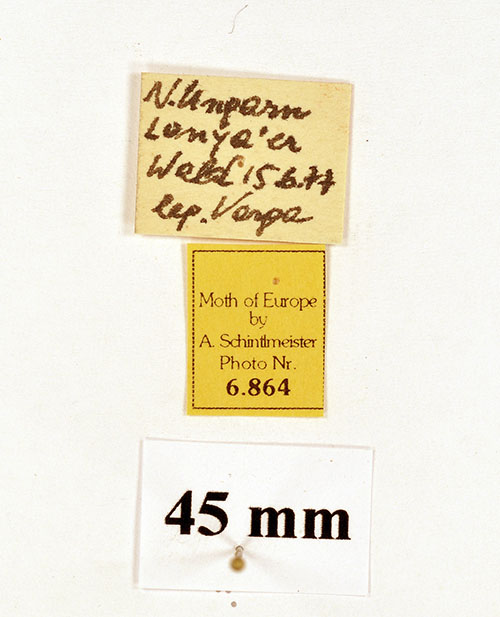 N. Ungarn
Lonya'er
Wald 15.6.77
lep. Varga
Moth of Europe
by
A. Schintlmeister
Photo Nr.
6.864
45 mm